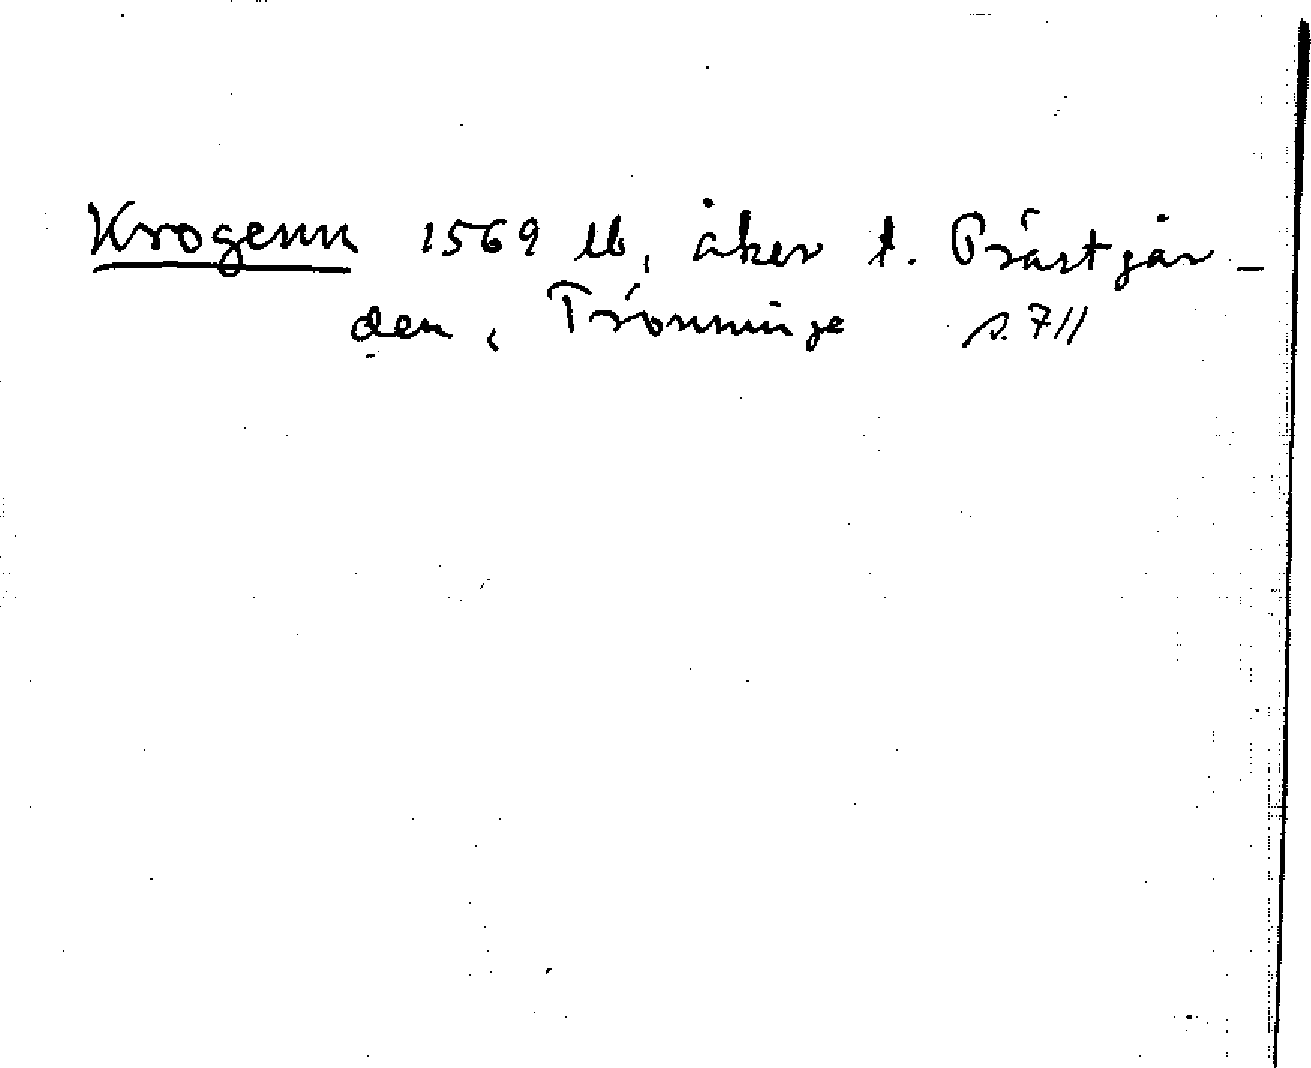 Krogenn 1569 lb, åker t. Prästgår-
den, Trönninge s. 711